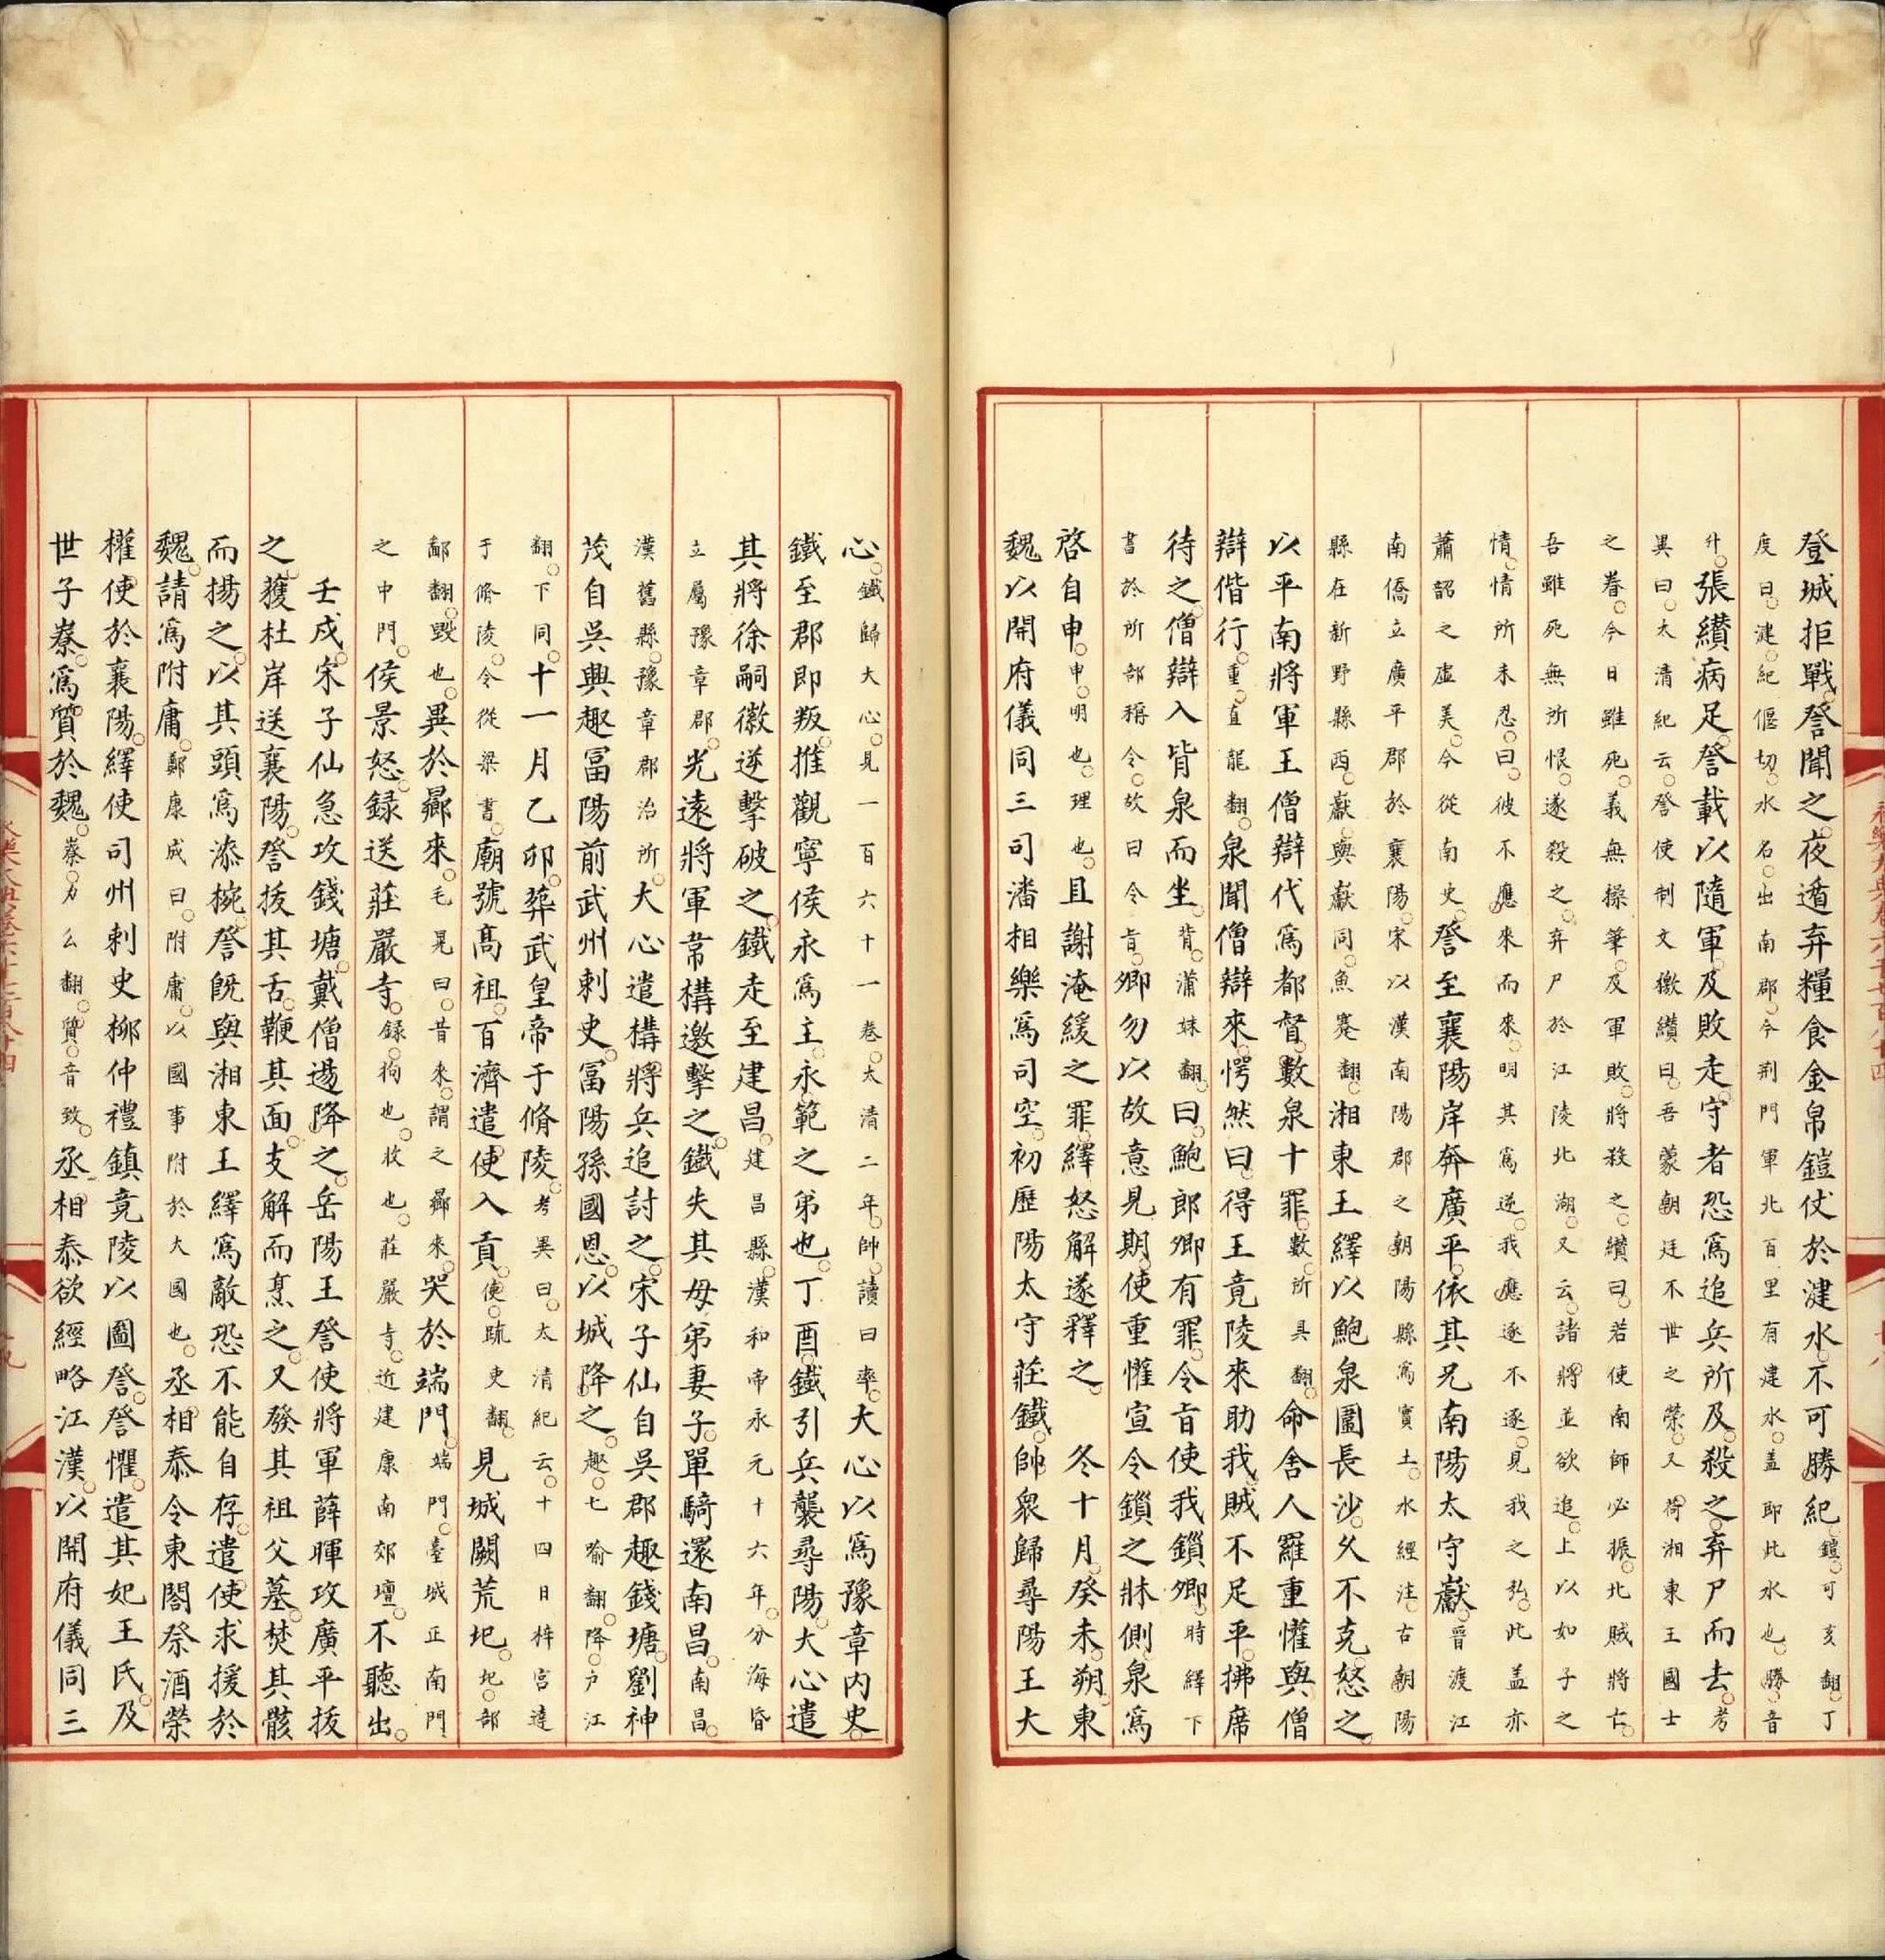 登城拒戰詧聞之夜遁弃糧食金帛鎧仗於湕水不可勝紀鎧可亥翻丁
度曰湕紀偃切水名出南郡今荆門軍北百里有湕水盖即此水也勝音
升張纘病足詧載以隨軍及敗走守者恐爲追兵所及殺之弃尸而去考
異曰太清紀云詧使制文檄纘曰吾蒙朝廷不世之榮又荷湘東王國士
之眷今日雖死義無操筆及軍敗將殺之纘曰若使南師必振北賊將亡
吾雖死無所恨遂殺之弃尸於江陵北湖又云諸將並欲追上以如子之
情情所未忍曰彼不應來而來明其爲逆我應逐不逐見我之弘此盖亦
蕭韶之虛美今從南史詧至襄陽岸奔廣平依其兄南陽太守獻晉渡江
南僑立廣平郡於襄陽宋以漢南陽郡之朝陽縣爲實土水經注古朝陽
縣在新野縣西獻與巘同魚蹇翻湘東王繹以鮑泉圍長沙久不克怒之
以平南將軍王僧辯代爲都督數泉十罪數所具翻命舍人羅重懽與僧
辯偕行重直龍翻泉聞僧辯來愕然曰得王竟陵來助我賊不足平拂席
待之僧辯入背泉而坐背蒲妹翻曰鮑郎卿有罪令旨使我鎖卿時繹下
書於所部稱令故曰令旨卿勿以故意見期使重懽宣令鎖之牀側泉爲
啓自申申明也理也且謝淹緩之罪繹怒解遂釋之　冬十月癸未朔東
魏以開府儀同三司潘相樂爲司空初歷陽太守莊鐵帥衆歸尋陽王大
心鐵歸大心見一百六十一卷太清二年帥讀曰率大心以爲豫章内史
鐵至郡即叛推觀寧侯永爲主永範之弟也丁酉鐵引兵襲尋陽大心遣
其將徐嗣徽逆擊破之鐵走至建昌建昌縣漢和帝永元十六年分海昏
立屬豫章郡光遠將軍韋構邀擊之鐵失其母弟妻子單騎還南昌南昌
漢舊縣豫章郡治所大心遣構將兵追討之宋子仙自吳郡趣錢塘劉神
茂自吳興趣富陽前武州刺史富陽孫國恩以城降之趣七喻翻降户江
翻下同十一月乙卯葬武皇帝于脩陵考異曰太清紀云十四日梓宮達
于脩陵今從梁書廟號高祖百濟遣使入貢使疏吏翻見城闕荒圮圮部
鄙翻毁也異於曏來毛晃曰昔來謂之曏來哭於端門端門臺城正南門
之中門侯景怒録送莊嚴寺録拘也收也莊嚴寺近建康南郊壇不聽出
　壬戌宋子仙急攻錢塘戴僧逷降之岳陽王詧使將軍薛暉攻廣平拔
之獲杜岸送襄陽詧拔其舌鞭其面支解而烹之又發其祖父墓焚其骸
而揚之以其頭爲漆椀詧既與湘東王繹爲敵恐不能自存遣使求援於
魏請爲附庸鄭康成曰附庸以國事附於大國也丞相泰令東閤祭酒榮
權使於襄陽繹使司州刺史柳仲禮鎮竟陵以圖詧詧懼遣其妃王氏及
世子嶚爲質於魏嶚力么翻質音致丞相泰欲經略江漢以開府儀同三